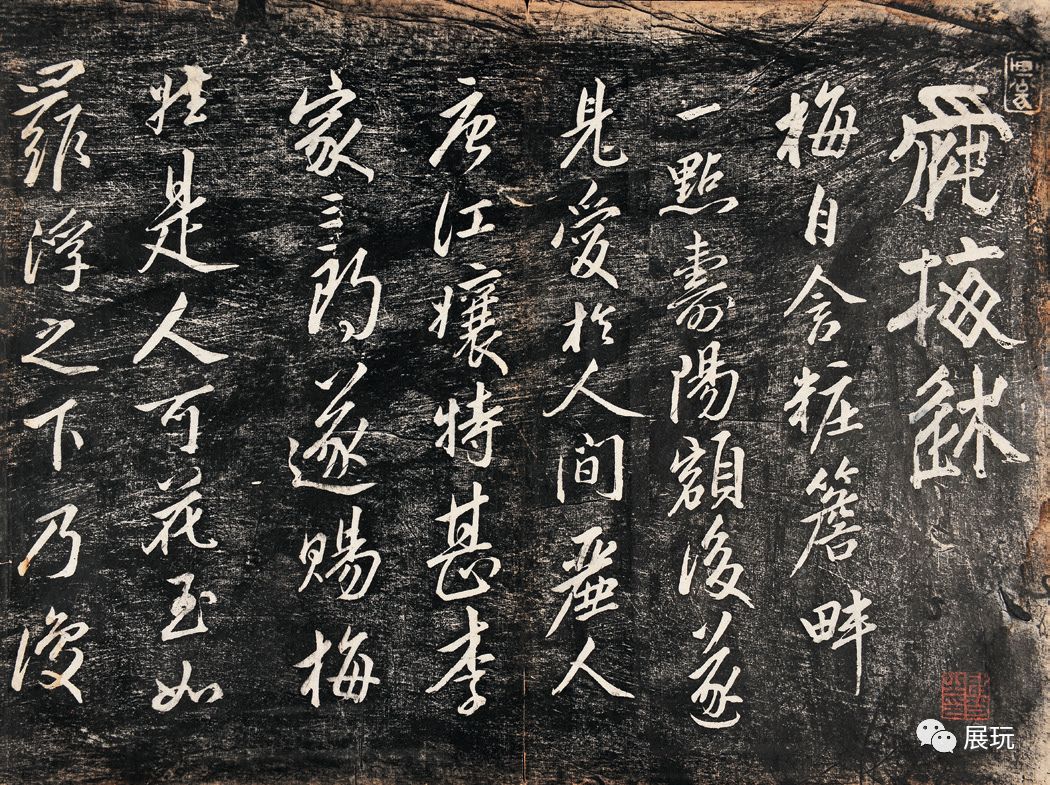 梅自含粧簷畔
一點壽陽額後遂
見愛於人間麗人
唐江孃特甚李
家三郎遂賜梅
姓是人可花至如
羅浮之下乃復
展玩